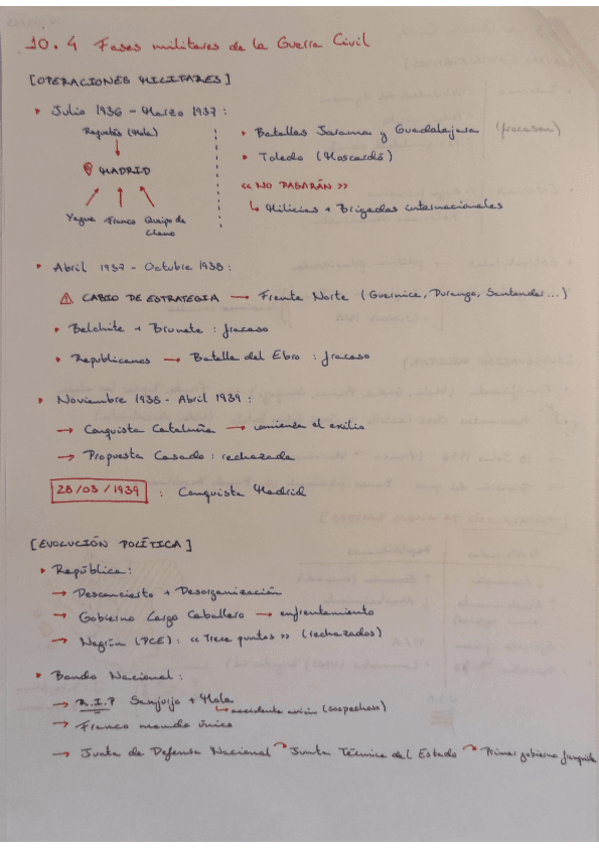 10.4 Fases militares de la Guerra Civil
[OPERACIONES MILITARES]
• Julio 1936 - Marzo 1937:
Requetés (Mola)
MADRID
Yagüe Franco Queipo de Llano
• Batallas Jarama y Guadalajara (fracasan)
• Toledo (Moscardó)
<< NO PASARÁN >>
↳ Milicias + Brigadas internacionales
• Abril 1937 - Octubre 1938:
⚠ CABIO DE ESTRATEGIA → Frente Norte (Guernica, Durango, Santander...)
• Belchite + Brunete: fracaso
• Republicanos → Batalla del Ebro: fracaso
• Noviembre 1938 - Abril 1939:
→ Conquista Cataluña → comienza el exilio
→ Propuesta Casado: rechazada
28/03/1939 : Conquista Madrid
[EVOLUCIÓN POLÍTICA]
• República:
→ Desconcierto + Desorganización
→ Gobierno Largo Caballero → enfrentamiento
→ Negrín (PCE): << Trece puntos >> (rechazados)
• Bando Nacional:
→ R.I.P Sanjurjo + Mola
↳ accidente avión (sospechoso)
→ Franco mando único
→ Junta de Defensa Nacional → Junta Técnica del Estado → Primer gobierno franquista